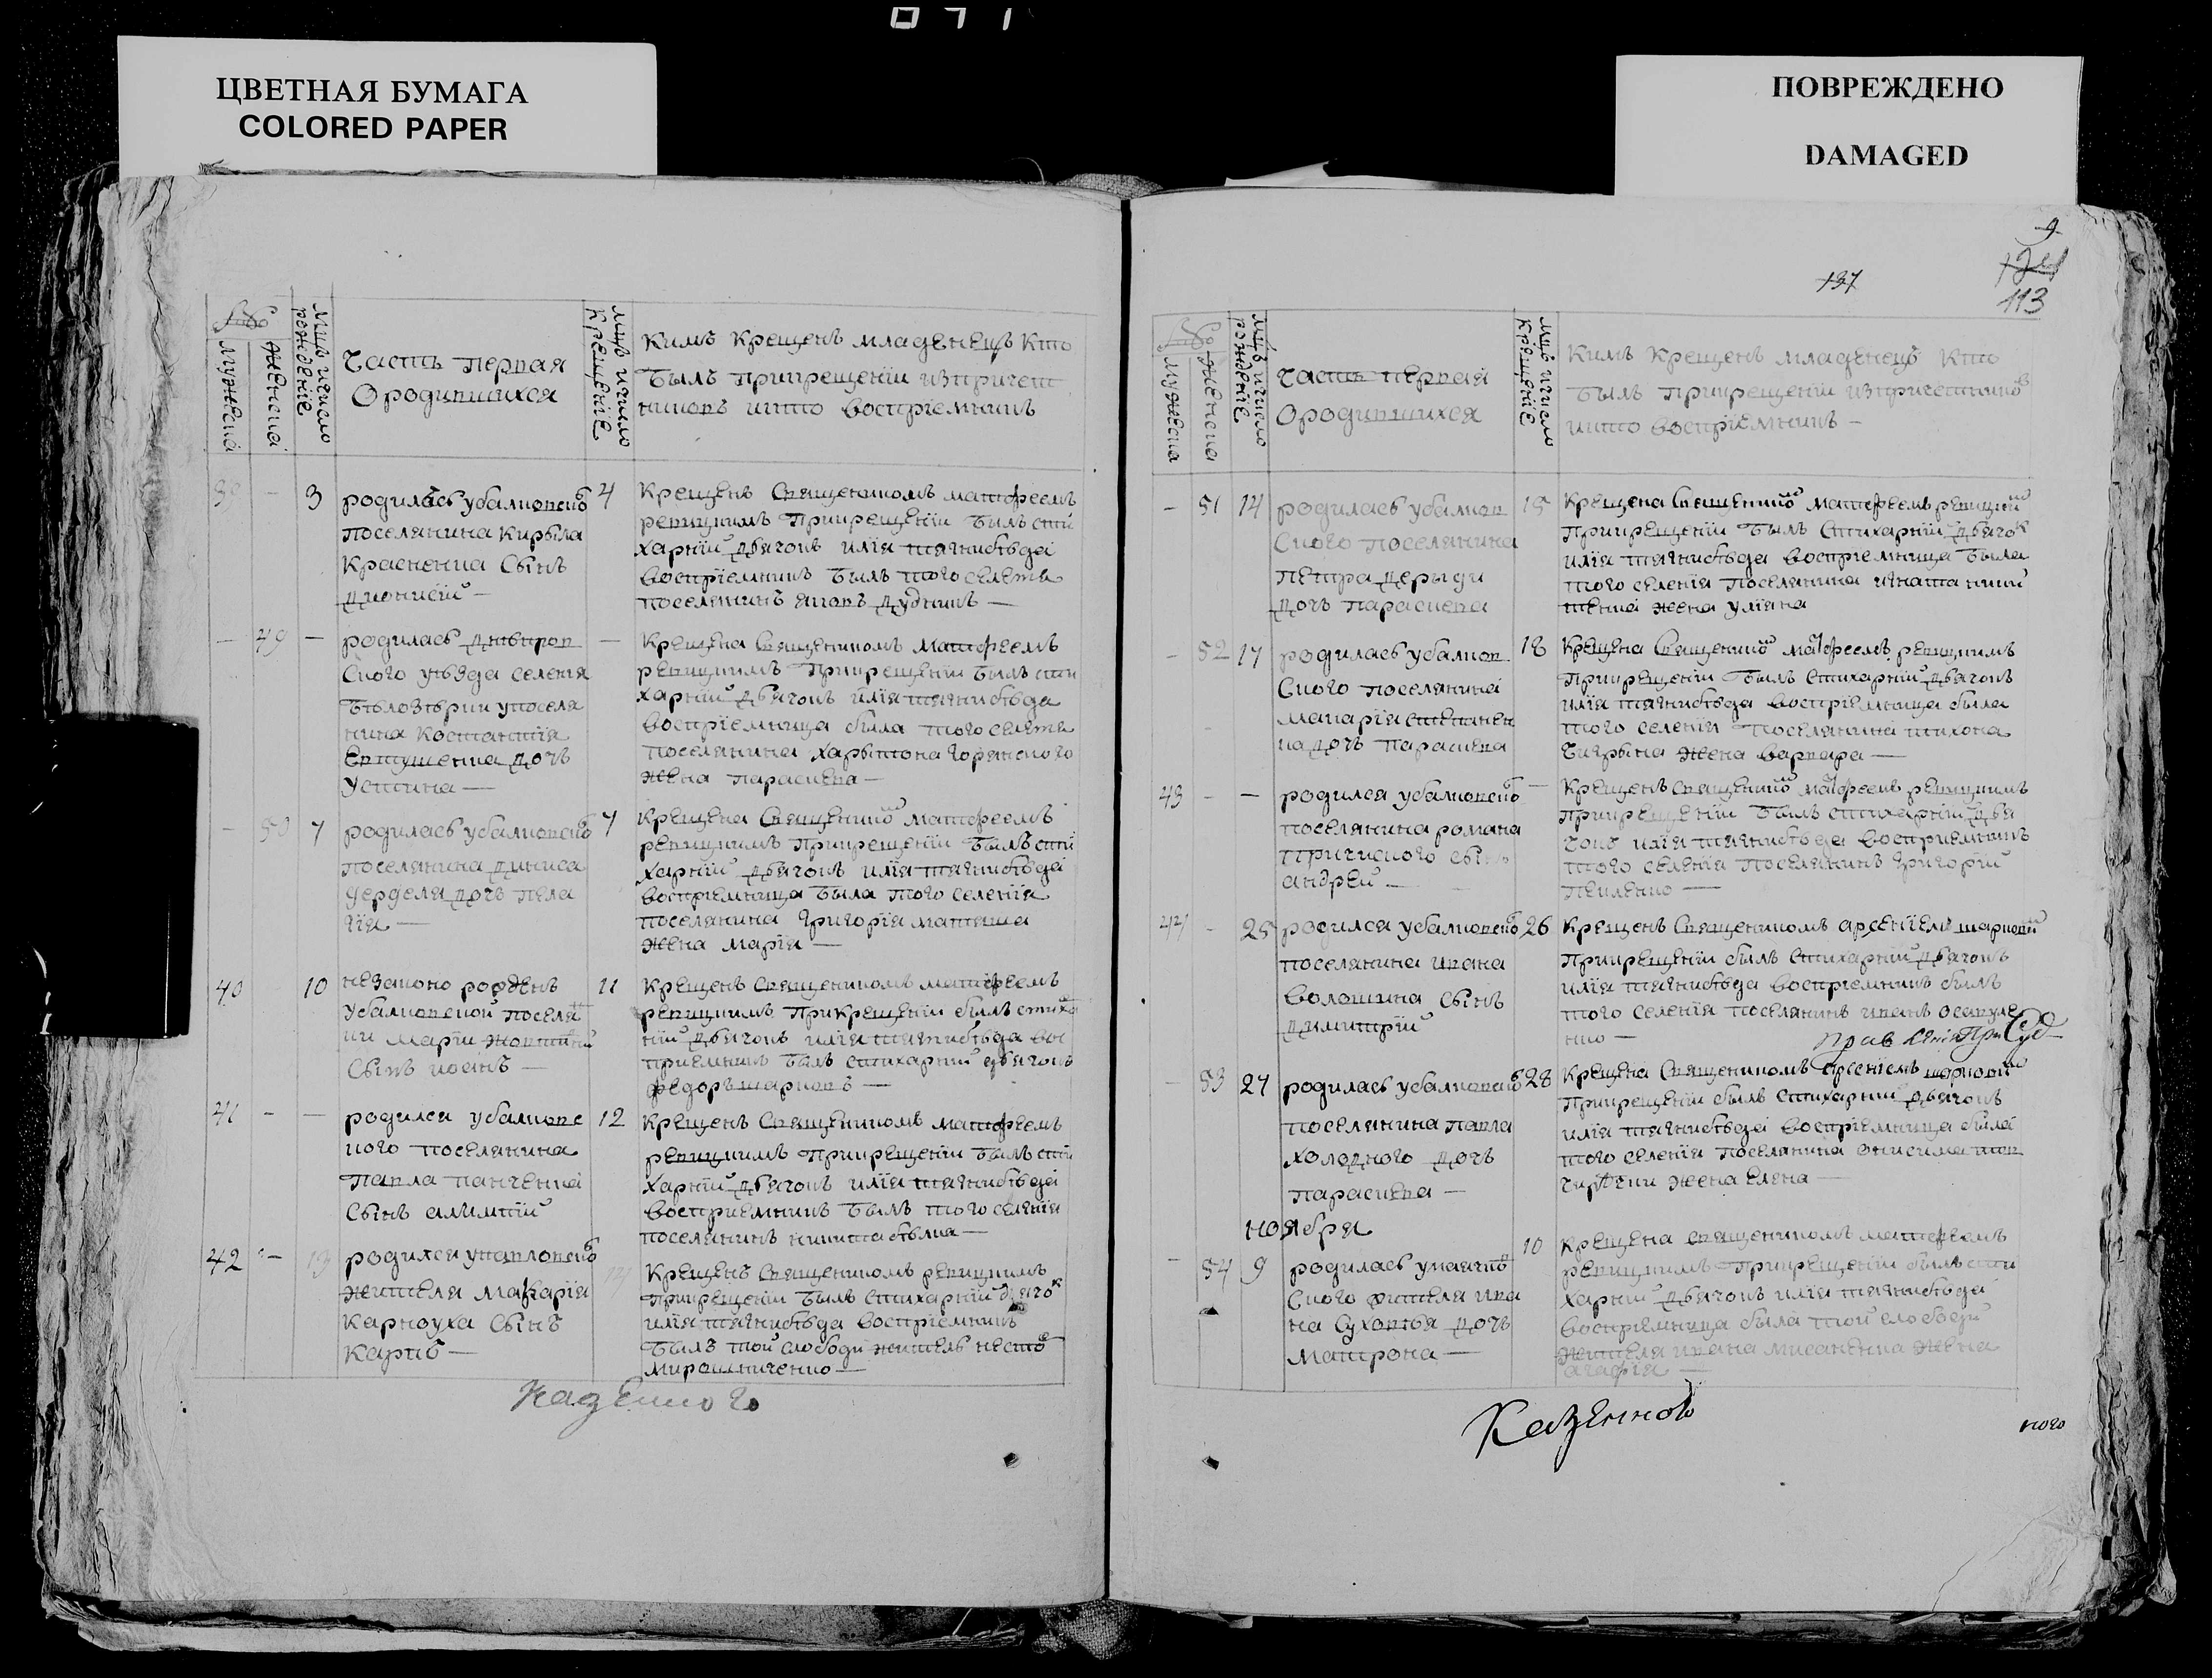 071
ЦВЕТНАЯ БУМАГА
COLORED PAPER
ПОВРЕЖДЕНО
DAMAGED
мужеска
женска
мцъ ичисло рожденїе
Часть первая
Ородившихся
мцъ ичисло Крещенїе
Кимъ Крещенъ младенецъ Кто
былъ Прикрещенїи изпричет
никовъ икто воспрїемникъ
3
родилась убалковскъ
4
поселянина Кирыла
Красненка Сынъ
Дионисїй —
Крещенъ Священникомъ матфеемъ
ревицкимъ Прикрещенїи былъ сти
харнїй Дьячокъ илїя тягнибѣда
воспрїемникъ былъ того селенїя
поселянинъ яковъ Дудникъ —
— 49 —
родилась Днѣпров
Ского уѣзда селенїя
Бѣлозѣрки упоселя
нина Костантїя
Евтушенка Дочь
Устина —
—
Крещена Священникомъ матфеемъ
ревицкимъ Прикрещенїи былъ сти
харнїй Дьячокъ илїя тягнибѣда
воспрїемница была того селенїя
поселянина харытона Горянского
жена параскева —
— 50 7
родилась убалковскъ
7
поселянина Дениса
дочь пела
гїя —
Крещена Священникъ матфеемъ
ревицкимъ Прикрещенїи былъ сти
харнїй Дьячокъ илїя тягнибѣда
воспрїемница была того селенїя
поселянина Григорїя матяша
жена марїя —
40 10
незаконо рожденъ
11
убалковской поселя
ки марїи
Сынъ иоанъ —
Крещенъ Священникомъ матфеемъ
ревицкимъ Прикрещенїи былъ стиха
нїй Дьячокъ илїя тягнибѣда вос
прїемникъ былъ стихарнїй дьячокъ
федоръ шарковъ —
41 - —
родился убалковс
12
кого поселянина
Павла панченка
Сынъ алимпїй
Крещенъ Священникомъ матфеемъ
ревицкимъ Прикрещенїи былъ сти
харнїй Дьячокъ илїя тягнибѣда
воспрїемникъ былъ того селенїя
поселянинъ никита бѣлка —
42 — 13
родился упавловскъ
жителя макарїя
Карноуха Сынъ
Карпъ —
Крещенъ Священникомъ ревицкимъ
Прикрещенїи былъ стихарнїй дьячок
илїя тягнибѣда воспрїемникъ
былъ той слободи житель несто
мирошниченко —
Казенного
9
137
124
113
мужеска
женска
мцъ ичисло рожденїе
Часть первая
Ородившихся
мцъ ичисло Крещенїе
Кимъ Крещенъ младенецъ Кто
былъ Прикрещенїи изпричетниковъ
икто воспрїемникъ —
— 51 14
родилась убалков
15
Ского поселянина
Петра Дерыди
Дочь параскева
Крещена Священникъ матфеемъ ревицкимъ
Прикрещенїи былъ Стихарнїй Дьячок
илїя тягнибѣда воспрїемница была
того селенїя поселянина игната
жена улїяна
— 52 17
родилась убалков
18
Ского поселянина
макарїя степанен
ка дочь параскева
Крещена Священникъ матфеемъ ревицкимъ
Прикрещенїи былъ Стихарнїй Дьячокъ
илїя тягнибѣда воспрїемница была
того селенїя поселянина тихона
Чигрына жена варвара —
43 - —
родился убалковскъ
—
поселянина романа
сынъ
андрей —
Крещенъ Священникъ матфеемъ ревицкимъ
Прикрещенїи былъ стихарнїй Дья
чокъ илїя тягнибѣда воспрїемникъ
того селенїя поселянинъ Григорїй
Павленко —
44 - 25
родился убалковскъ
26
поселянина ивана
Волошина Сынъ
Димитрїй
Крещенъ Священникомъ арсенїемъ
Прикрещенїи былъ Стихарнїй Дьячокъ
илїя тягнибѣда воспрїемникъ былъ
того селенїя поселянинъ иванъ осауле
нко —
— 53 27
родилась убалковскъ
28
поселянина павла
холодного Дочь
Параскева —
Крещена Священникомъ арсенїемъ
Прикрещенїи былъ Стихарнїй Дьячокъ
илїя тягнибѣда воспрїемница была
того селенїя поселянина онисима
жена Елена —
ноября
— 54 9
родилась
10
Ского жителя ива
на Суховѣя Дочь
Матрона —
Крещена Священникомъ матфеемъ
ревицкимъ Прикрещенїи былъ сти
харнїй Дьячокъ илїя тягнибѣда
воспрїемница была той слободи
жителя ивана мисаненка жена
агафїя —
Казенного